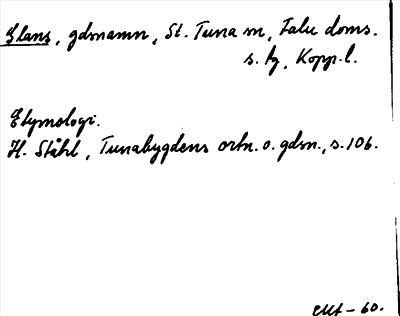 Glans, gdsnamn, St. Tuna sn, Falu doms.
s. lg, Kopp. l.
Etymologi.
H. Ståhl, Tunabygdens ortn. o. gdsn., s. 106.
- 60.